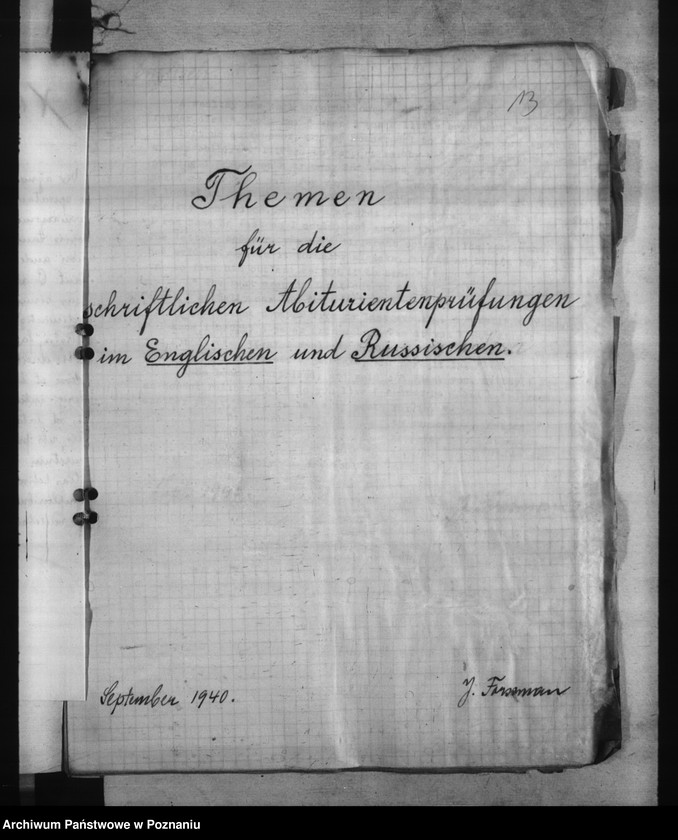 13
Themen
für die
schriftlichen Abiturientenprüfungen
im Englischen und Russischen.
September 1940.
J. Forssman
Archiwum Państwowe w Poznaniu